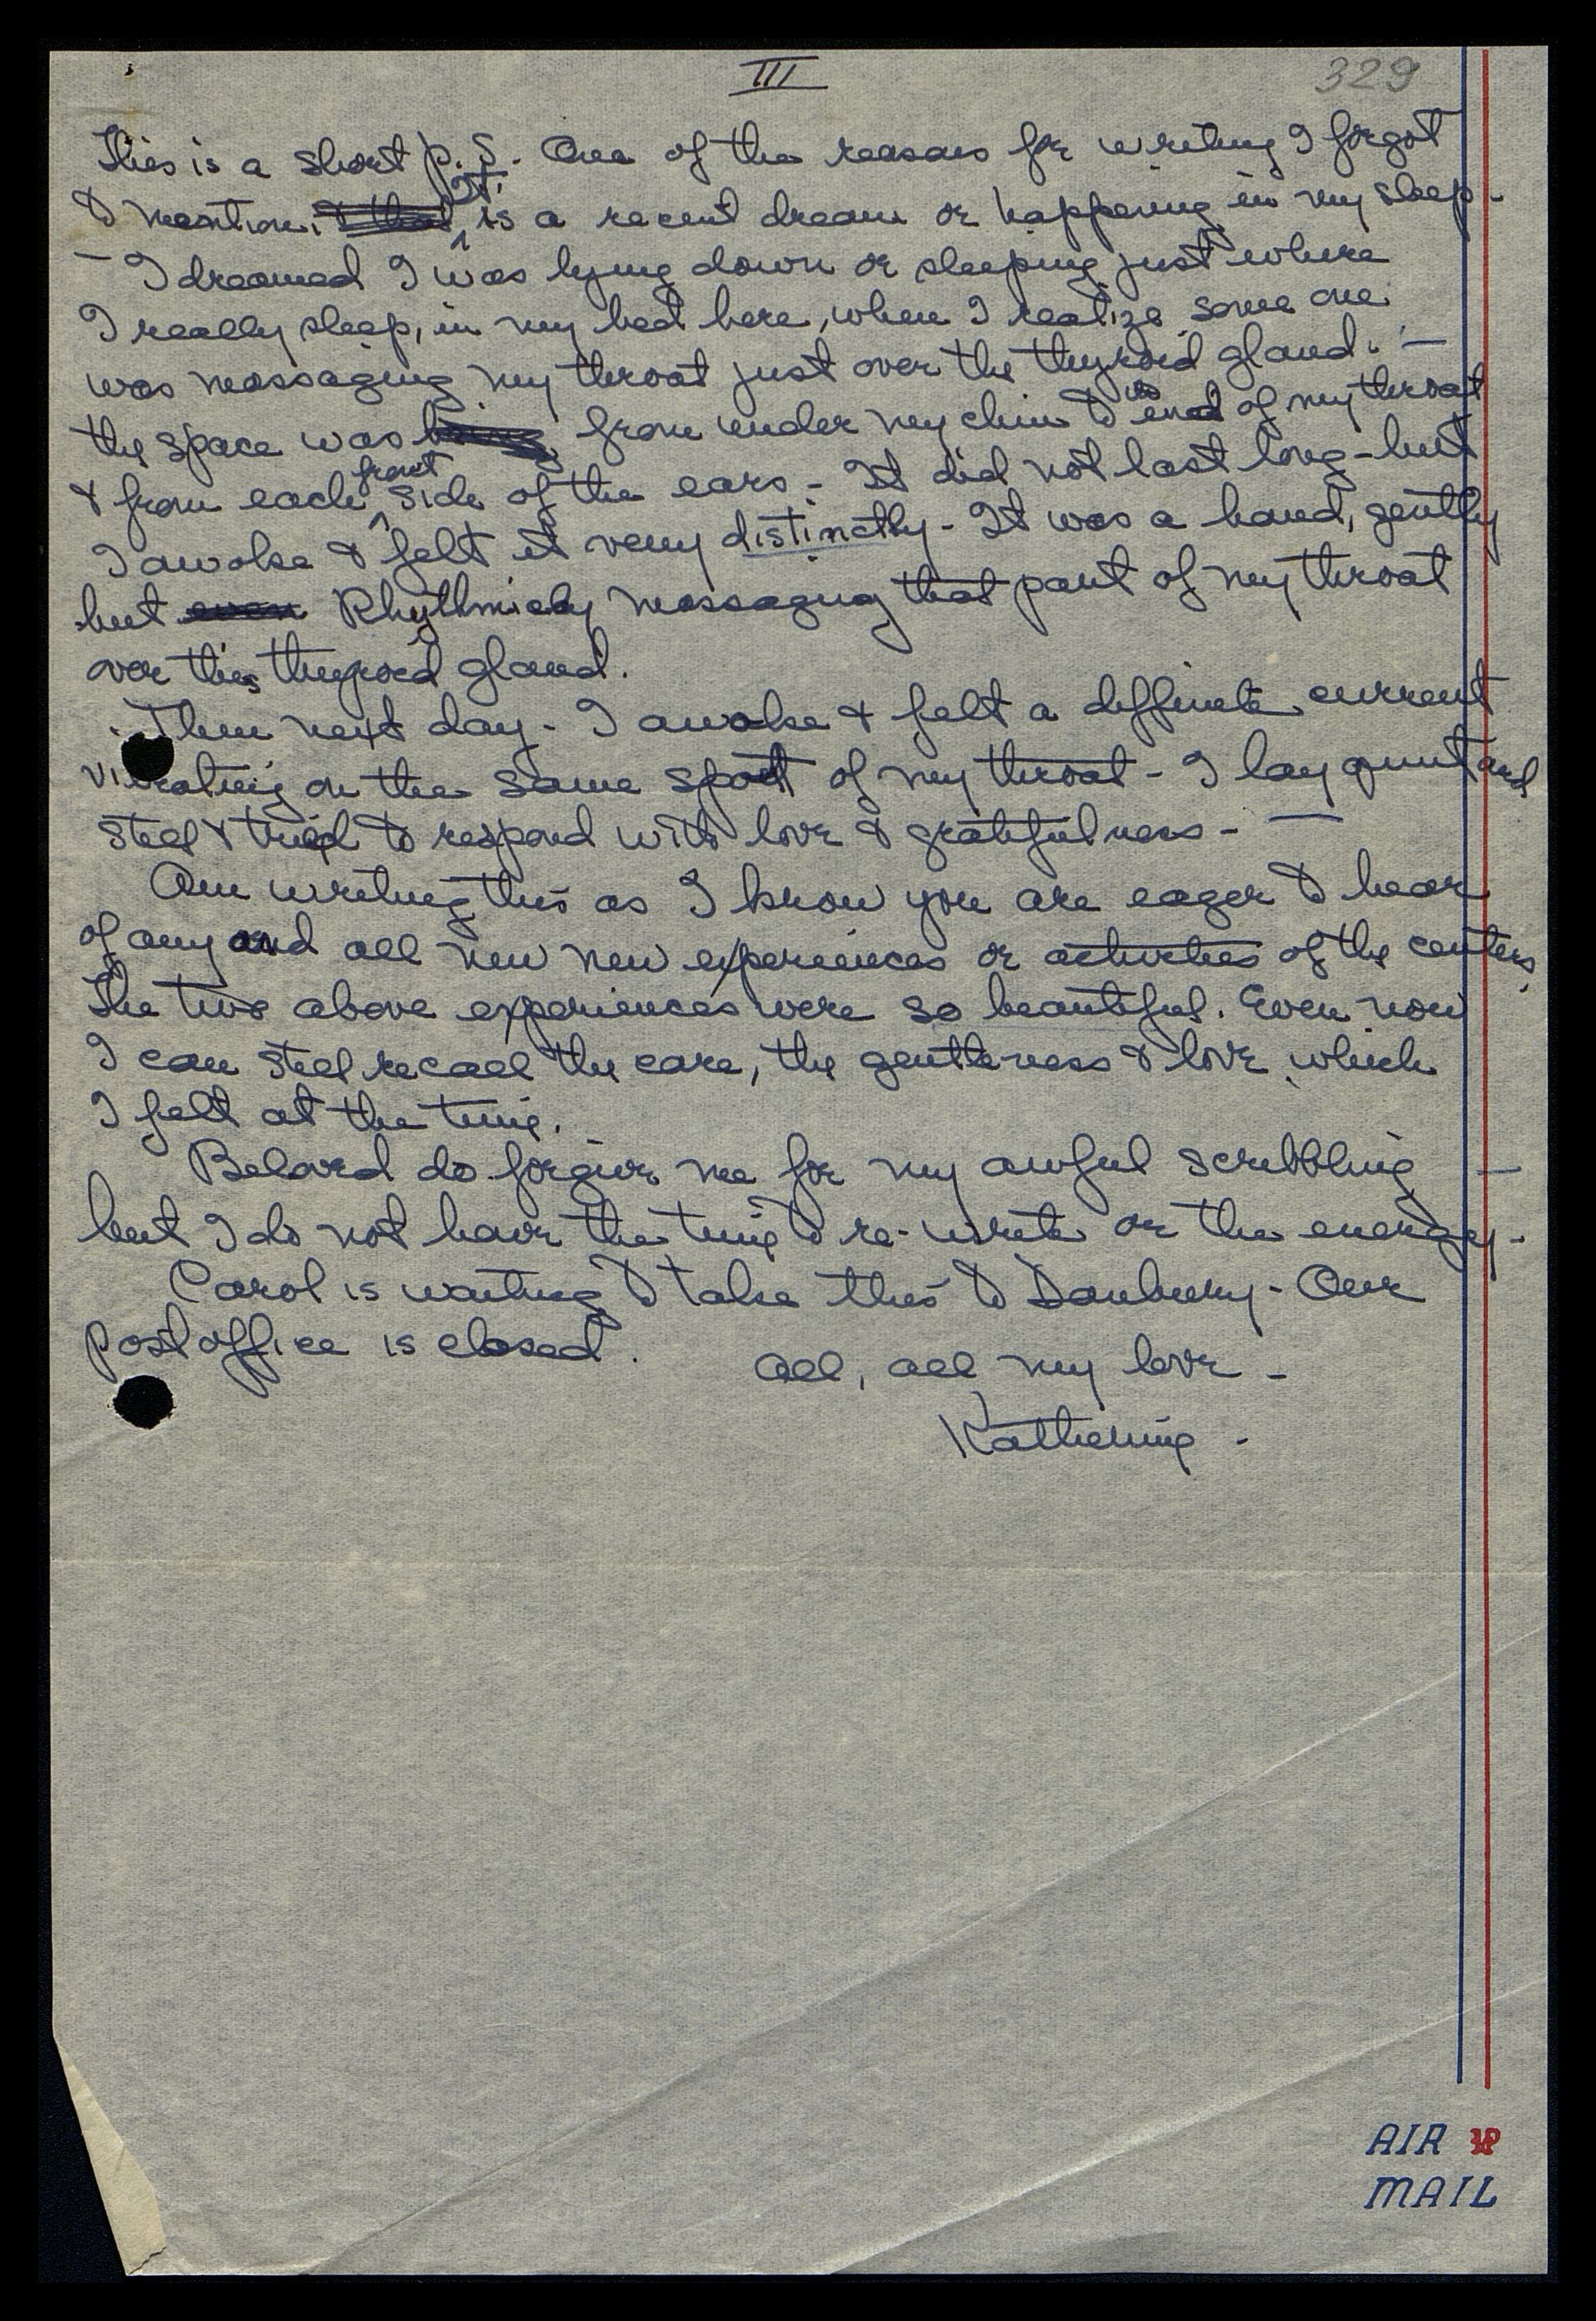 III
329
This is a short p.S. One of the reasons for writing I forgot
to mention. It is a recent dream or happening in my sleep -
— I dreamed I was lying down or sleeping just where
I really sleep, in my bed here, when I realize some one
was massaging my throat just over the thyroid gland. —
the space was from under my chin to end of my throat
& from each front side of the ears - It did not last long - but
I awoke & felt it very distinctly - It was a hand, gently
but Rhythmicly massaging that part of my throat
over this thyroid gland.
Then next day - I awoke & felt a deffinite current
vibrating on the same spott of my throat - I lay quiet and
still & tried to respond with love & gratefulness - —
Am writing this as I know you are eager to hear
of any and all new new experiences or activities of the centers.
The two above experiences were so beautiful. Even now
I can still recall the care, the gentleness & love which
I felt at the time.
Beloved do forgive me for my awful scribbling —
but I do not have the time to re-write or the energy -
Carol is waiting to take this to Danbury - Our
post office is closed.
All, all my love -
Katherine -
AIR
MAIL